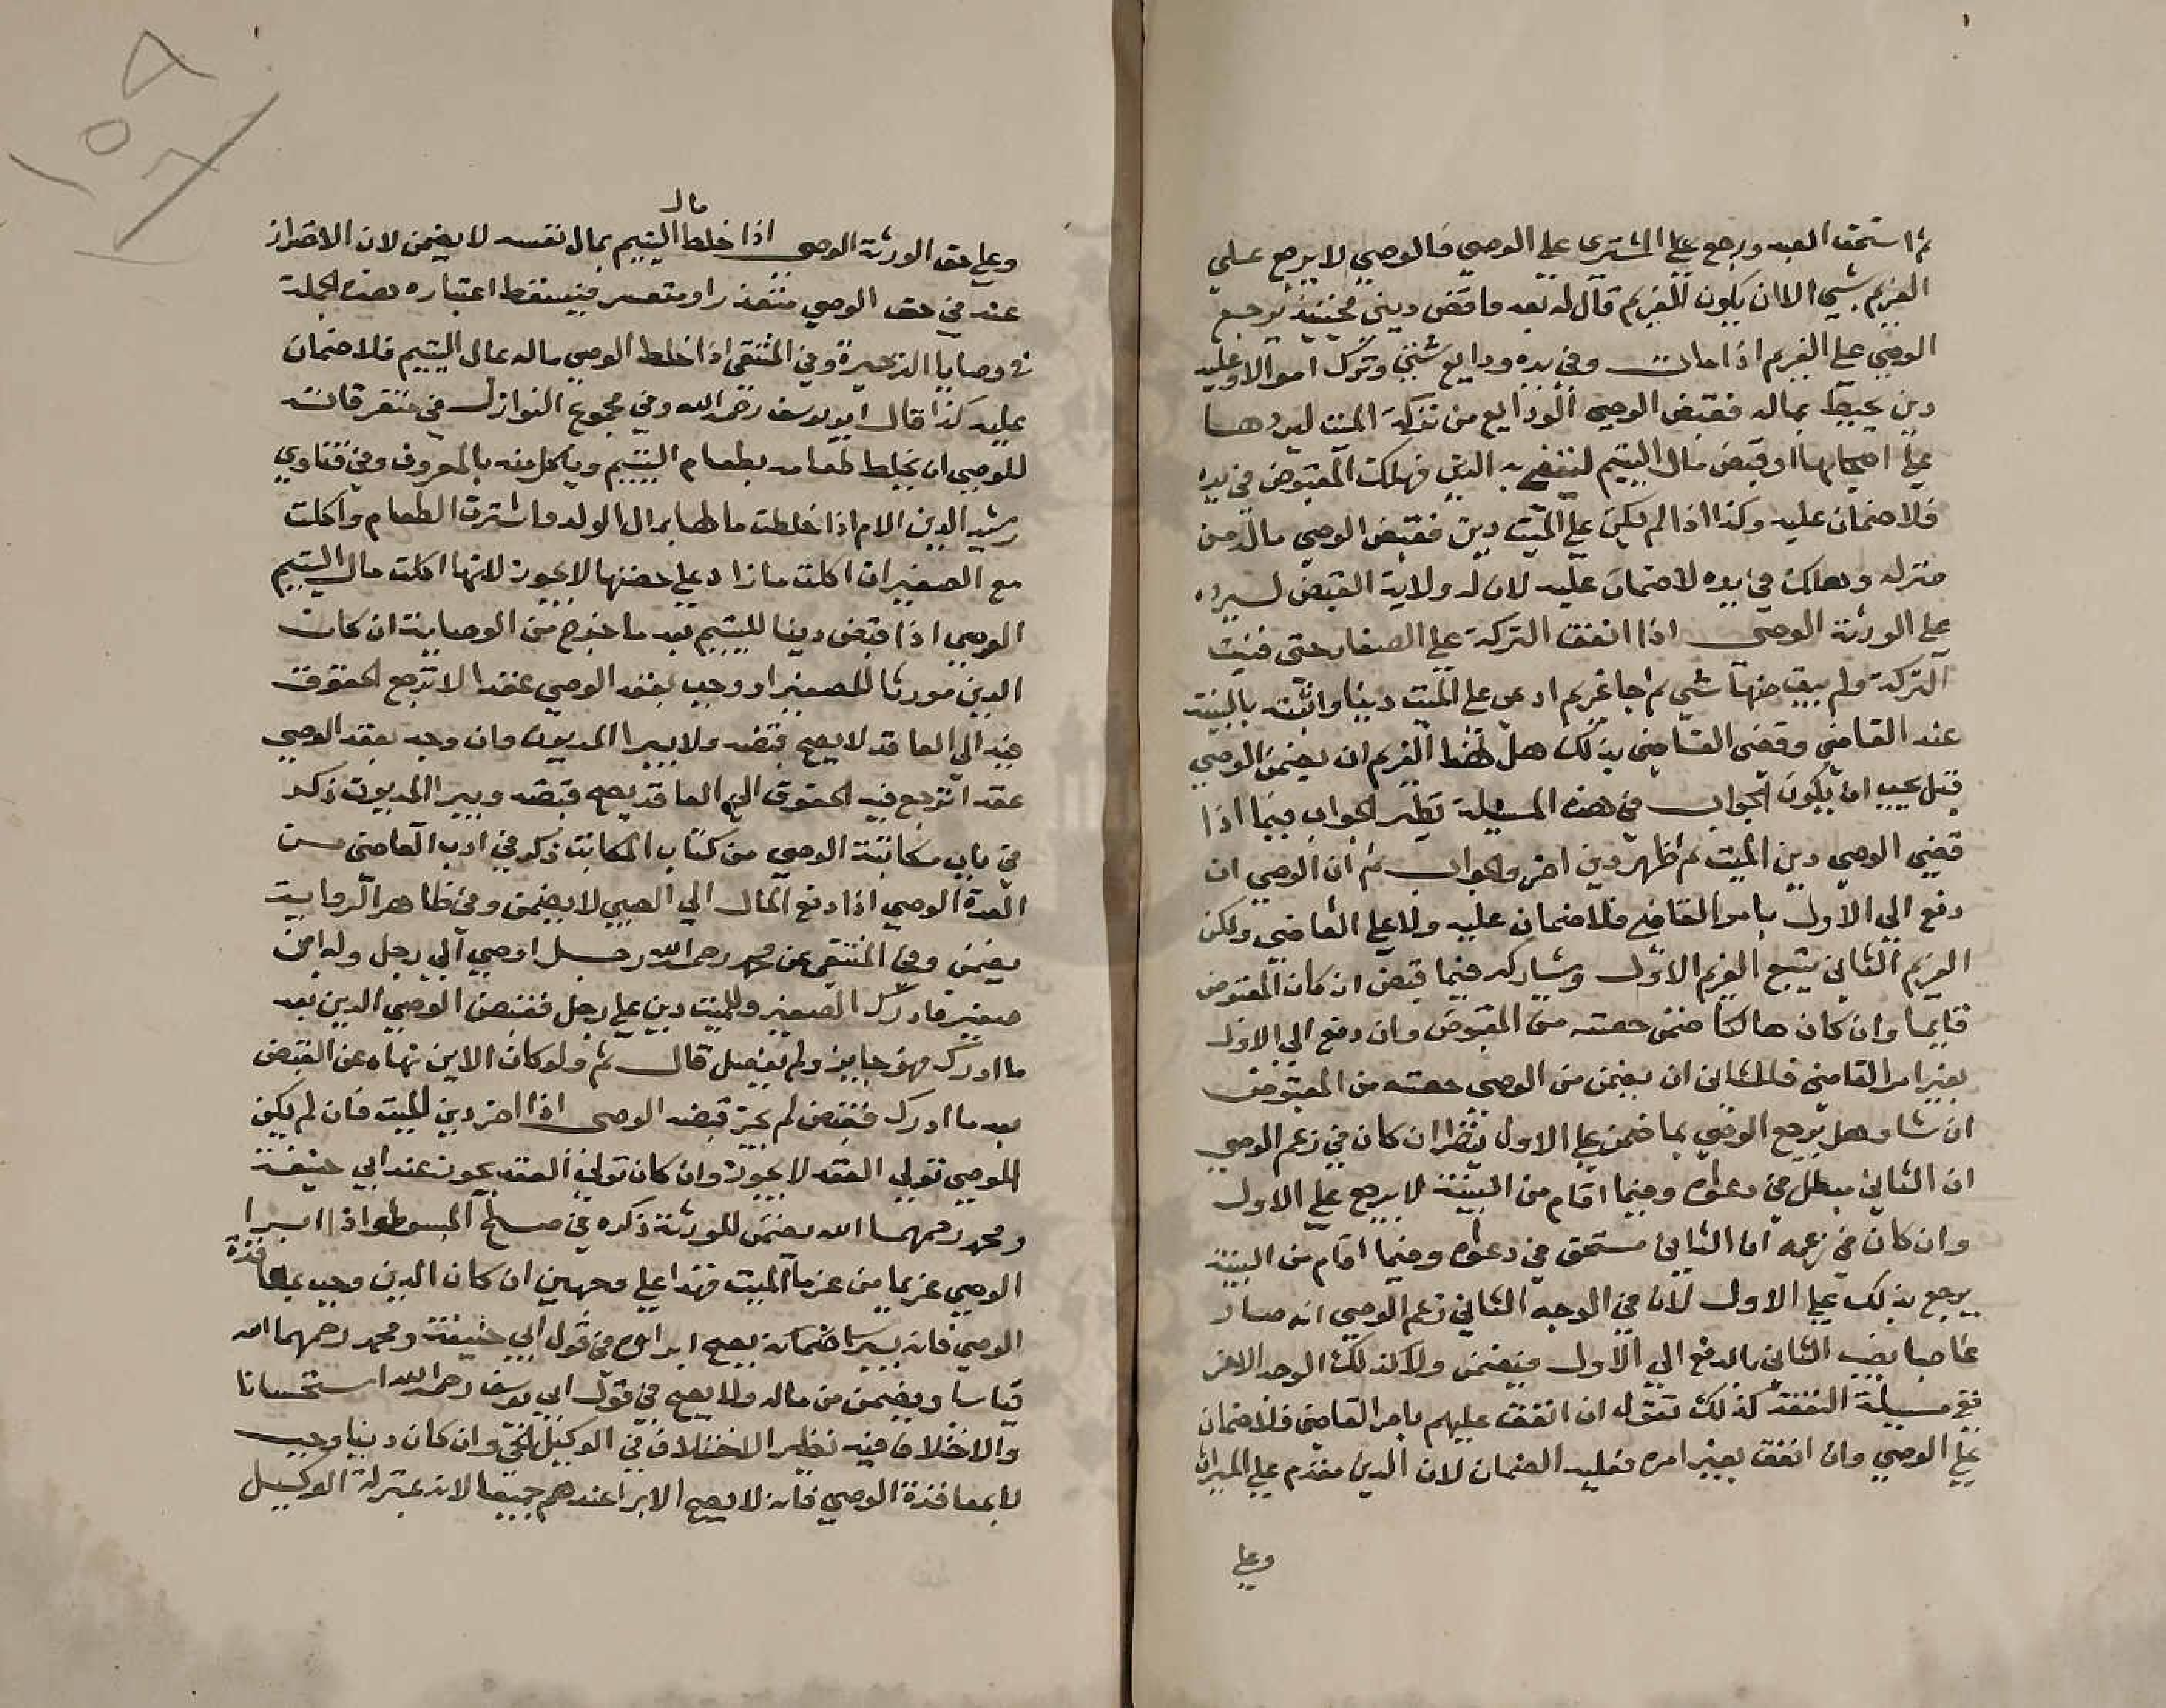 ثم استحق العبد ورجع على المشتري على الوصي فالوصي لا يرجع على
الغريم بشي الا ان يكون الغريم قال له بعه واقض ديني فحينئذ يرجع
الوصي على الغريم اذا مات وفي يده ودايع شتي وترك اموالا وعليه
دين يحيط بماله فقبض الوصي الودايع من تركة الميت ليردها
على اصحابها او قبض مال اليتيم لينتفع به الدين فهلك المقبوض في يده
فلا ضمان عليه وكذا اذا لم يكن على الميت دين فقبض الوصي ماله من
منزله وهلك في يده لا ضمان عليه لان له ولاية القبض ليرده
على الورثة الوصي اذا انفق التركة على الصغار حتى فنيت
التركة ولم يبق منها شي ثم جا غريم ادعى على الميت دينا واثبته بالبينة
عند القاضي وقضى القاضي بذلك هل لهذا الغريم ان يضمن الوصي
قيل يجب ان يكون الجواب في هذه المسيلة نظير الجواب فيما اذا
قضي الوصي دين الميت ثم ظهر دين اخر والجواب ثم ان الوصي ان
دفع الي الاول بامر القاضي فلا ضمان عليه ولا على القاضي ولكن
الغريم الثاني يتبع الغريم الاول وشاركه فيما قبض ان كان المقبوض
قايما وان كان هالكا ضمن حصته من المقبوض وان دفع الي الاول
بغير امر القاضي فللثاني ان يضمن من الوصي حصته من المقبوض
ان شا وهل يرجع الوصي بما ضمن على الاول ينظر ان كان في زعم الوصي
ان الثاني مبطل في دعواه وفيما اقام من البينة لا يرجع على الاول
وان كان في زعمه ان الثاني مستحق في دعواه وفيما اقام من البينة
يرجع بذلك على الاول لان في الوجه الثاني زعم الوصي انه صار
غاصبا نصيب الثاني بالدفع الي الاول فيضمن ولا كذلك الوجه الاخر
ففي مسيلة النفقة كذلك نقول ان انفق عليهم بامر القاضي فلا ضمان
على الوصي وان انفق بغير امره فعليه الضمان لان الدين مقدم على الميراث
وعلى
مال
وعلى حق الورثة الوصي اذا خلط اليتيم بمال نفسه لا يضمن لان الاحتراز
عنه في حق الوصي متعذر او متعسر فيسقط اعتباره هذه الجملة
في وصايا الذخيرة وفي المنتقى اذا خلط الوصي ماله بمال اليتيم فلا ضمان
عليه كذا قال ابو يوسف رحمه الله وفي مجموع النوازل في متفرقاته
للوصي ان يخلط طعامه بطعام اليتيم وياكل منه بالمعروف وفي فتاوي
رشيد الدين الام اذا خلطت مالها بمال الولد واشترت الطعام واكلت
مع الصغير ان اكلت ما زاد على حصتها لا يجوز لانها اكلت مال اليتيم
الوصي اذا قبض دينا لليتيم بعد ما خرج من الوصاية ان كان
الدين موروثا للصغير او وجب بعقد الوصي عقدا لا ترجع الحقوق
فيه الى العاقد لا يصح قبضه ولا يبرا المديون وان وجب بعقد الوصي
عقدا ترجع فيه الحقوق الي العاقد يصح قبضه ويبرا المديون ذكر
في باب مكاتبة الوصي من كتاب المكاتب ذكر في ادب القاضي من
العدة الوصي اذا دفع المال الي الصبي لا يضمن وفي ظاهر الرواية
يضمن وفي المنتقى عن محمد رحمه الله رجل اوصي الي رجل وله ابن
صغير فادرك الصغير وللميت دين على رجل فقبض الوصي الدين بعد
ما ادرك فهو جايز ولم يفصل قال ثم ولو كان الابن نهاه عن القبض
بعد ما ادرك فقبض لم يجز قبضه الوصي اذا اخر دين الميت فان لم يكن
الموصي تولي العقد لا يجوز وان كان تولي العقد يجوز عند ابي حنيفة
ومحمد رحمهما الله ويضمن للورثة ذكره في صلح المبسوط اذا ابرا
الوصي غريما من غرما الميت فهذا على وجهين ان كان الدين وجب بمعاقدة
الوصي فانه يصح ابراوه في قول ابي حنيفة ومحمد رحمهما الله
قياسا ويضمن من ماله ولا يصح في قول ابي يوسف رحمه الله استحسانا
والاختلاف فيه نظير الاختلاف في الوكيل وان كان دينا وجب
لا بمعاقدة الوصي فانه لا يصح الابرا عندهم جميعا لانه بمنزلة الوكيل